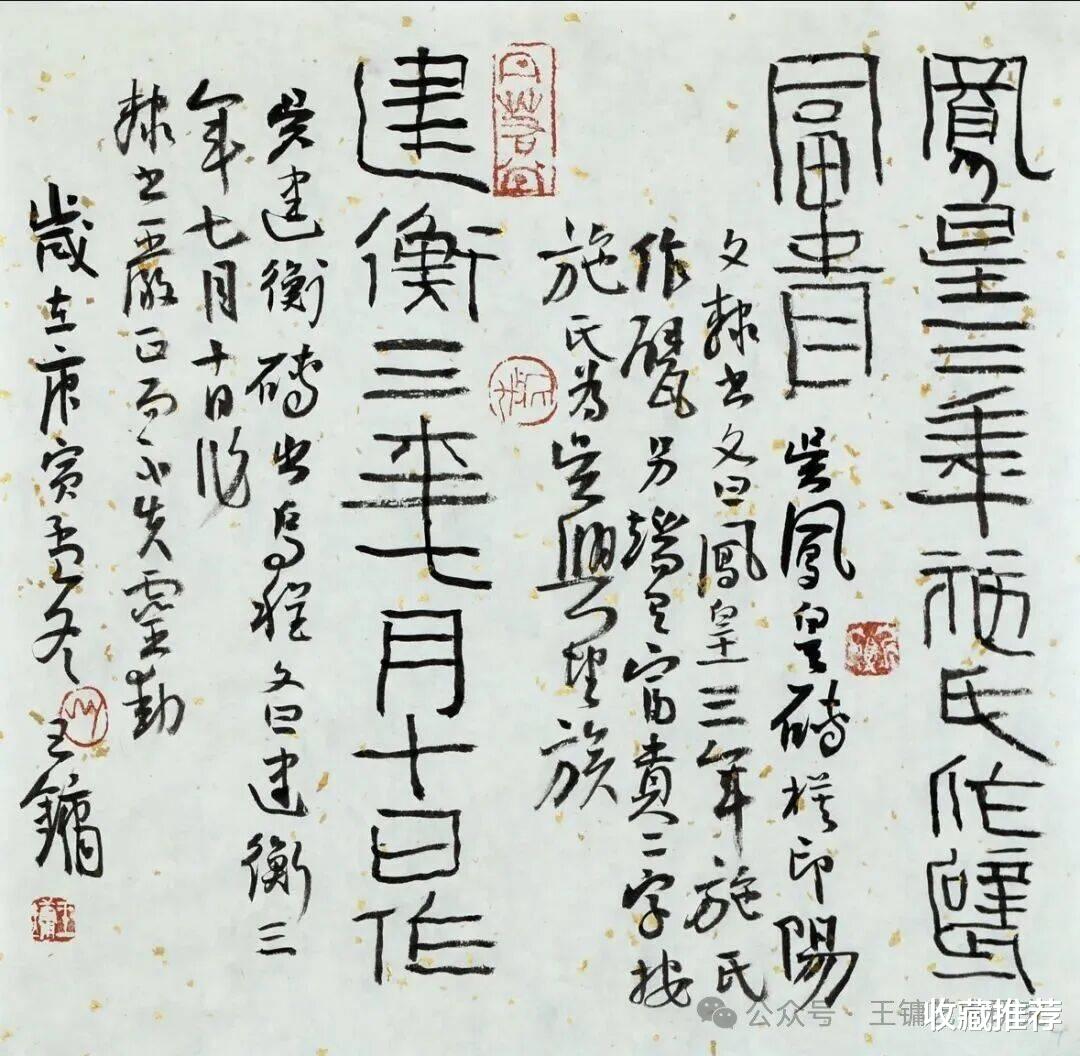 鳳皇三年施氏作甓
富貴
吳鳳皇磚模印陽
文隸書文曰鳳皇三年施氏
作甓另端有富貴二字按
施氏為吳興望族
建衡三年七月十日作
吳建衡磚出烏程文曰建衡三
年七月十日作
隸書嚴正而不失靈動
歲在庚寅孟冬 王鏞
公众号·王镛
收藏推荐